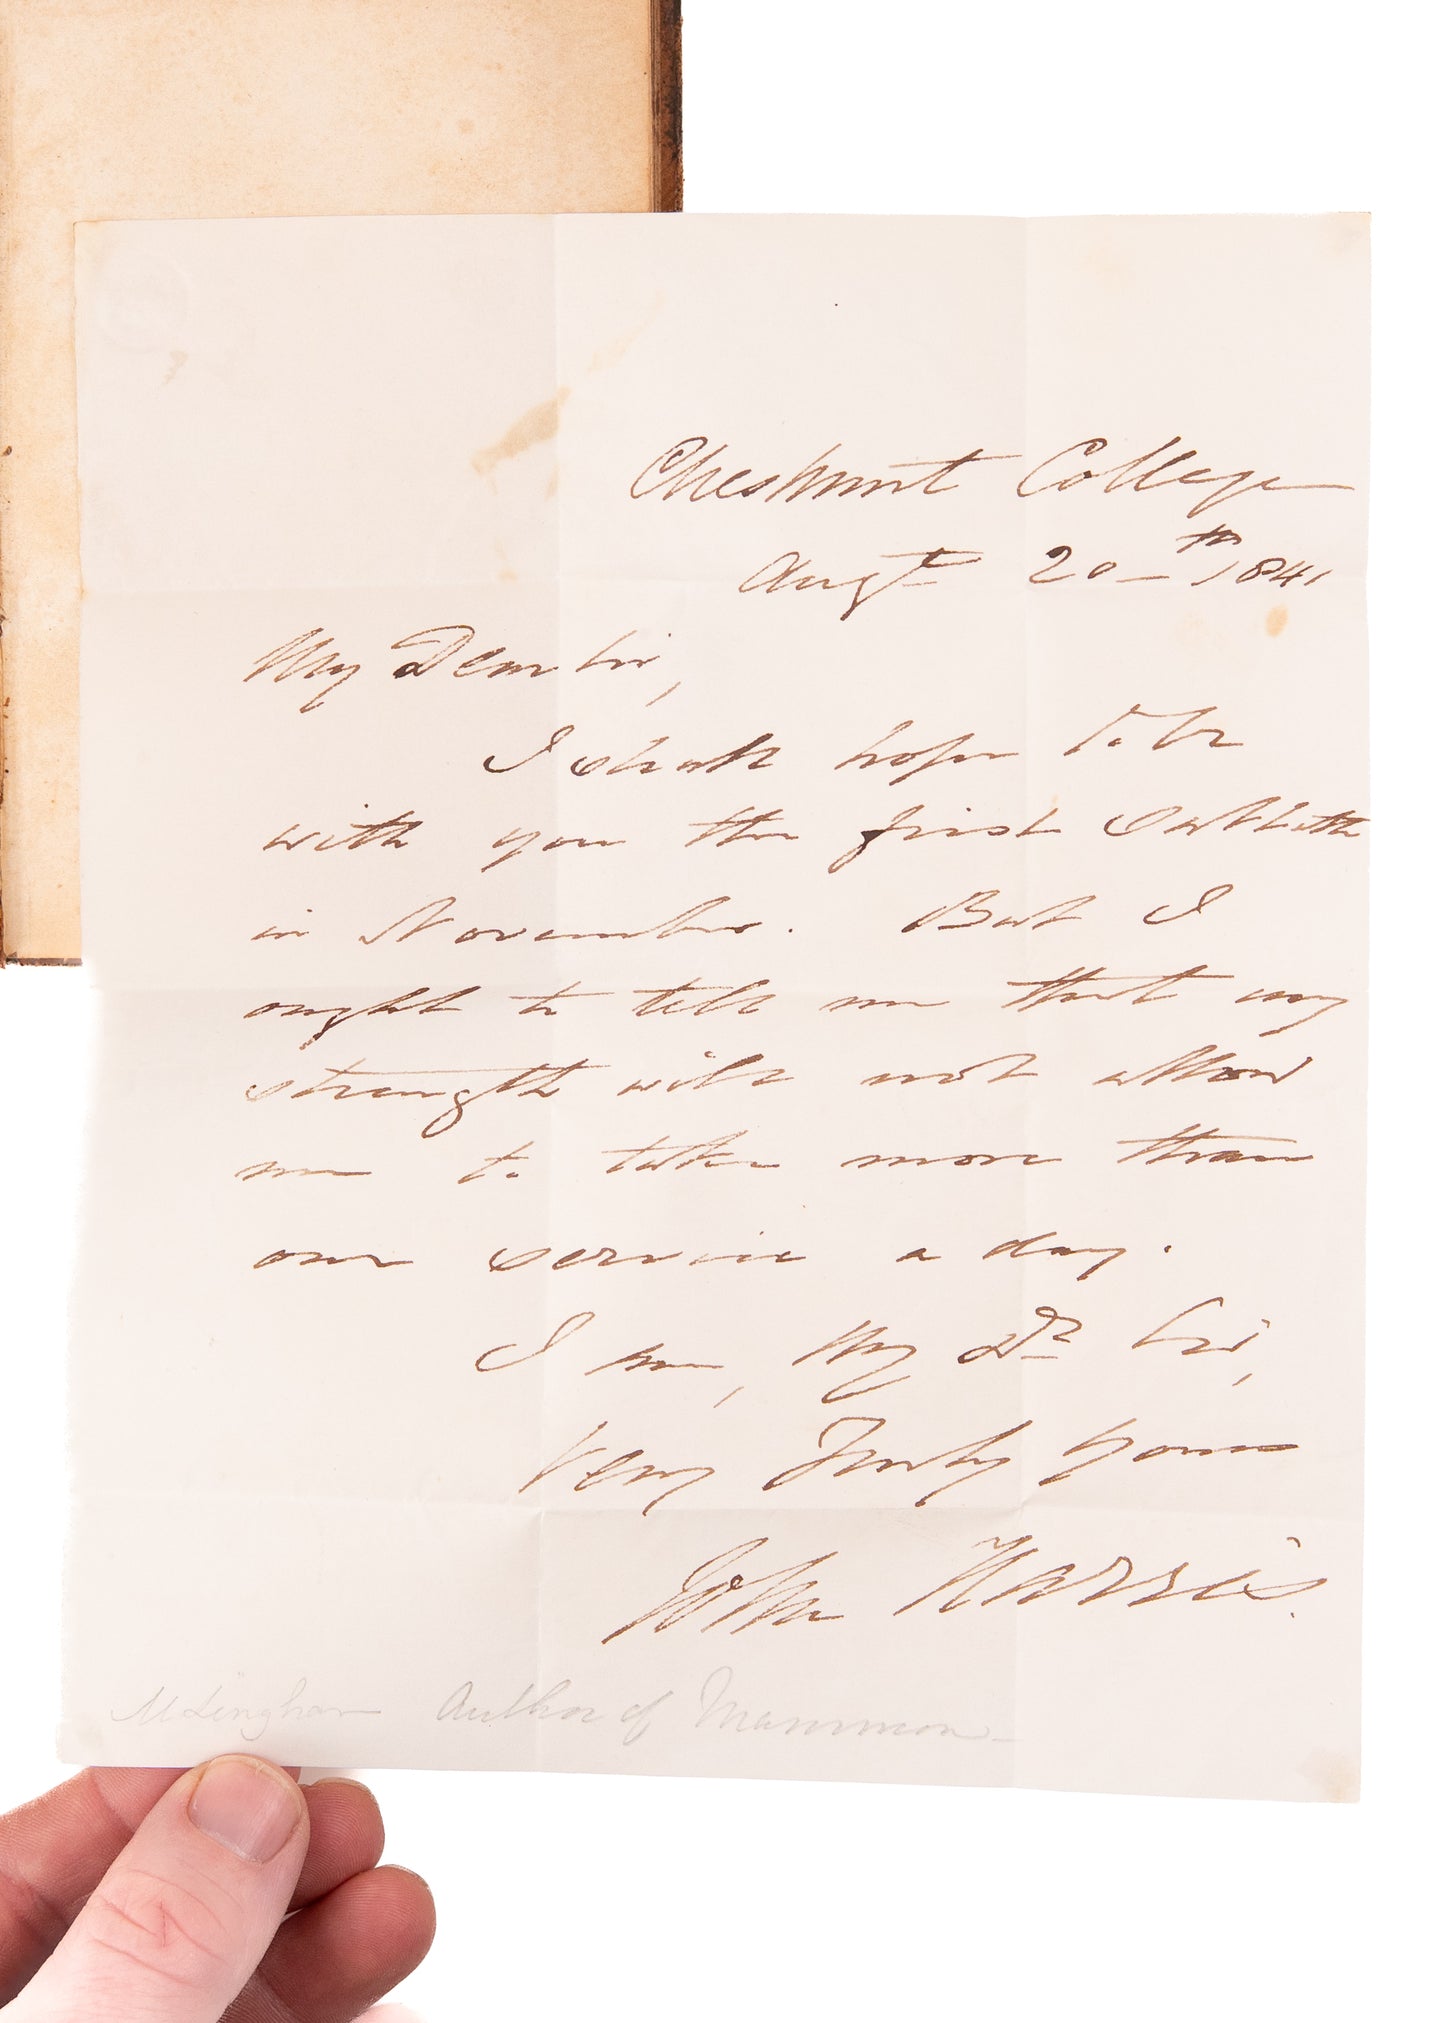 Cheshunt College
Augt 20th 1841
My Dear Sir,
I shall hope to be
with you the first Sabbath
in November. But I
ought to tell me that my
strength will not allow
me to take more than
one service a day.
I am, My Dr Sir,
Very Truly Yours
John Harris.
Author of Mammon